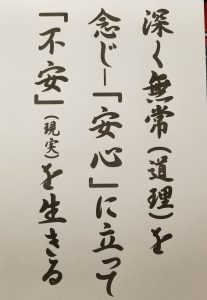 深く無常（道理）を
念じ―「安心」に立って
「不安」（現実）を生きる